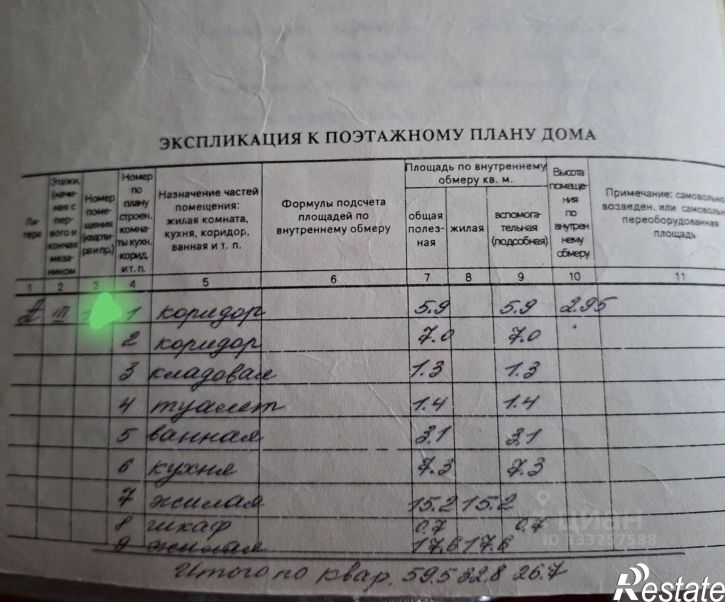 ЭКСПЛИКАЦИЯ К ПОЭТАЖНОМУ ПЛАНУ ДОМА
Ли- тера
Этажи, (начи- ная с пер- вого и кончая меза- нином
Номер поме- щения (кварти- ры и пр.)
Номер по плану строен. комна- ты кухн. корид. и т. п.
Назначение частей помещения: жилая комната, кухня, коридор, ванная и т. п.
Формулы подсчета площадей по внутреннему обмеру
Площадь по внутреннему обмеру кв. м.
общая полез- ная
жилая
вспомога- тельная (подсобная)
Высота помеще- ния по внутрен нему обмеру
Примечание: самовольно возведен. или самоволь переоборудованная площадь
1 2 3 4 5 6 7 8 9 10 11
А III 1 коридор 5.9 5.9 2.95
2 коридор 7.0 7.0
3 кладовая 1.3 1.3
4 туалет 1.4 1.4
5 ванная 3.1 3.1
6 кухня 7.3 7.3
7 жилая 15.2 15.2
8 шкаф 0.7 0.7
9 жилая 17.6 17.6
Итого по квар. 59.5 32.8 26.7
циан
ID 333257588
Restate